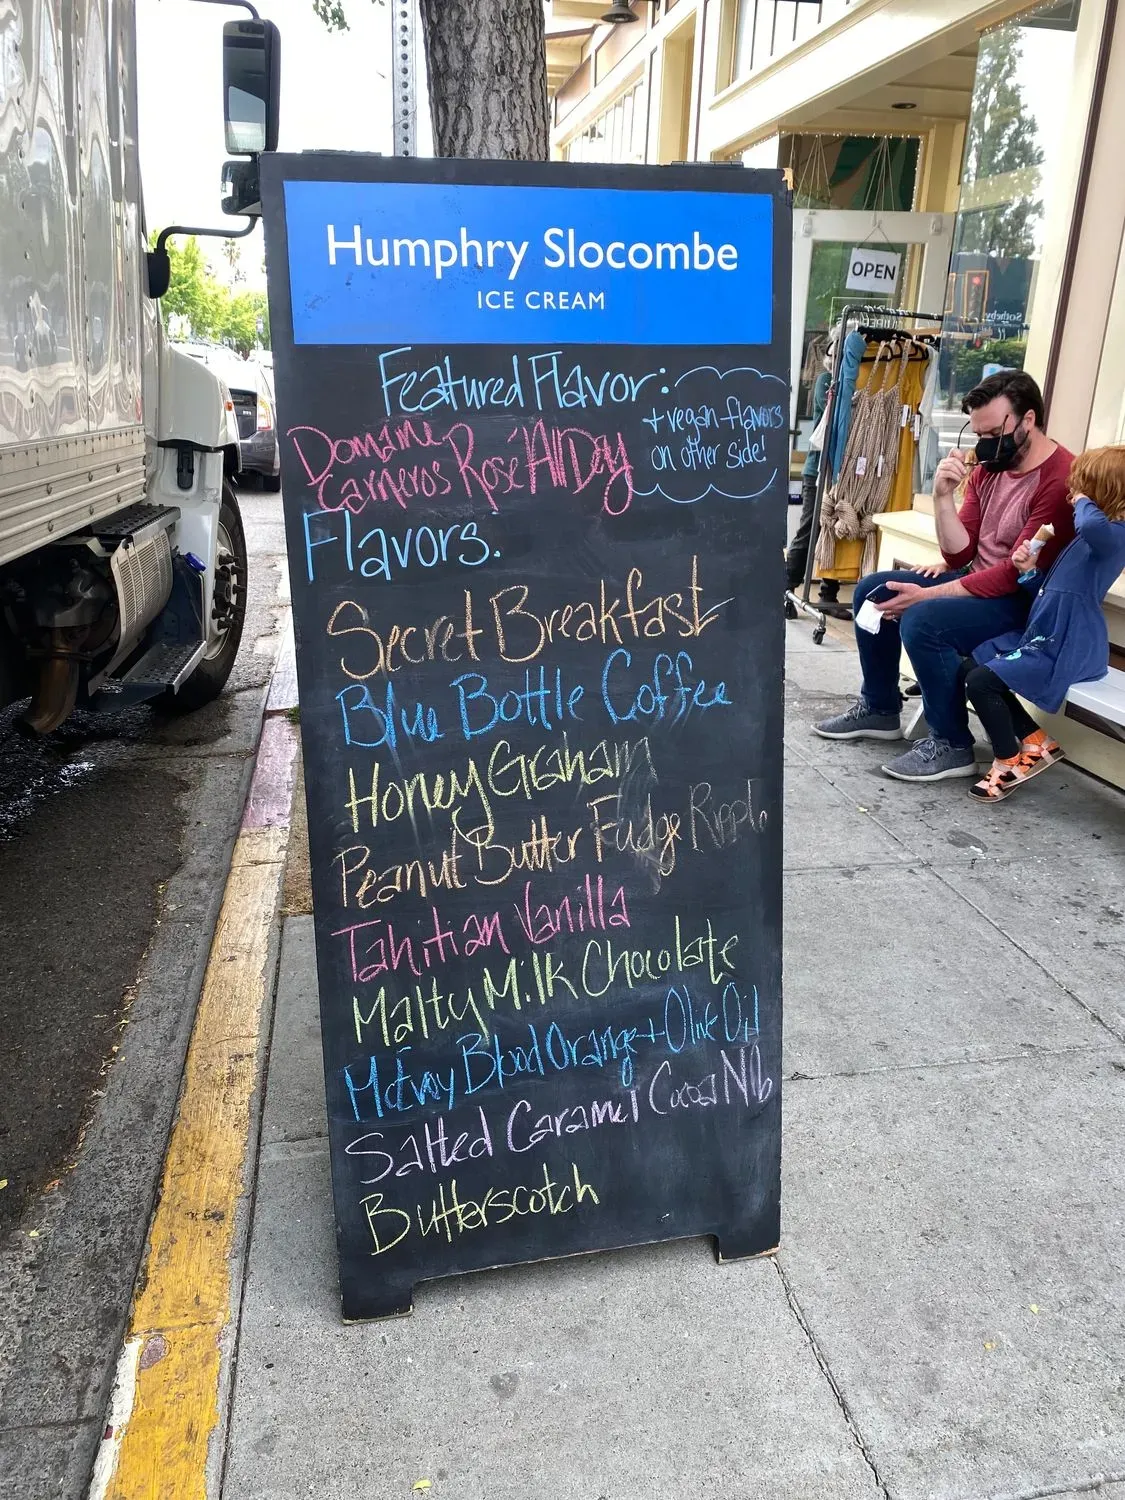 Humphry Slocombe
ICE CREAM
Featured Flavor:
+ vegan flavors
on other side!
Domaine
Carneros Rosé All Dey
Flavors.
Secret Breakfast
Blue Bottle Coffee
Honey Graham
Peanut Butter Fudge Ripple
Tahitian Vanilla
Malty Milk Chocolate
McEvoy Blood Orange + Olive Oil
Salted Caramel Cocoa Nib
Butterscotch
OPEN
Sotheby's